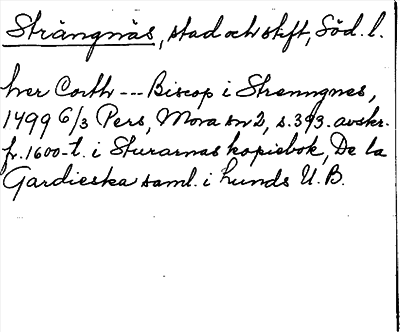 Strängnäs, stad och stift, Söd. l.
her Corth --- Biscop i Strenngnes,
1499 6/3 Pers, Mora sn 2, s. 393. avskr.
fr. 1600-t. i Sturarnas kopiebok, De la
Gardieska saml. i Lunds U.B.